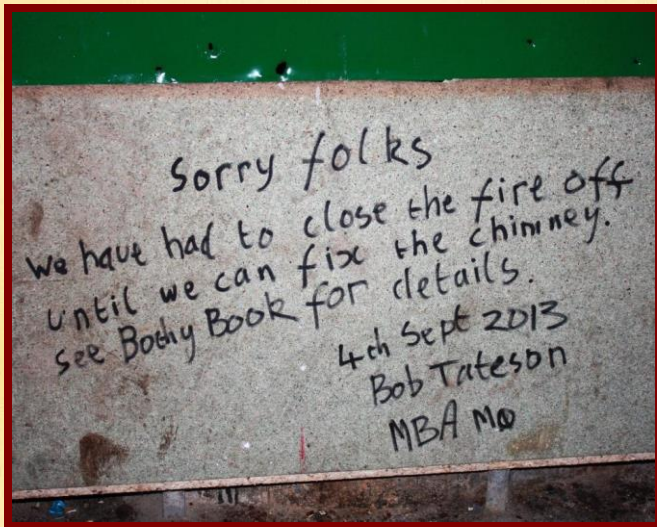 Sorry folks
we have had to close the fire off
until we can fix the chimney.
see Bothy Book for details.
4th Sept 2013
Bob Tateson
MBA MO